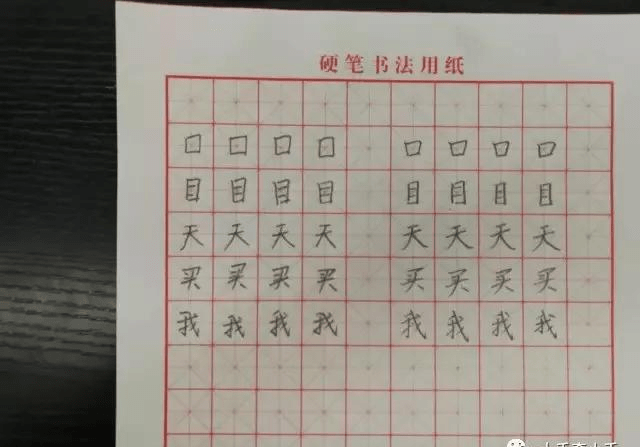 硬笔书法用纸
口口口口 口口口口
目目目目 目目目目
天天天天 天天天天
买买买买 买买买买
我我我我 我我我我